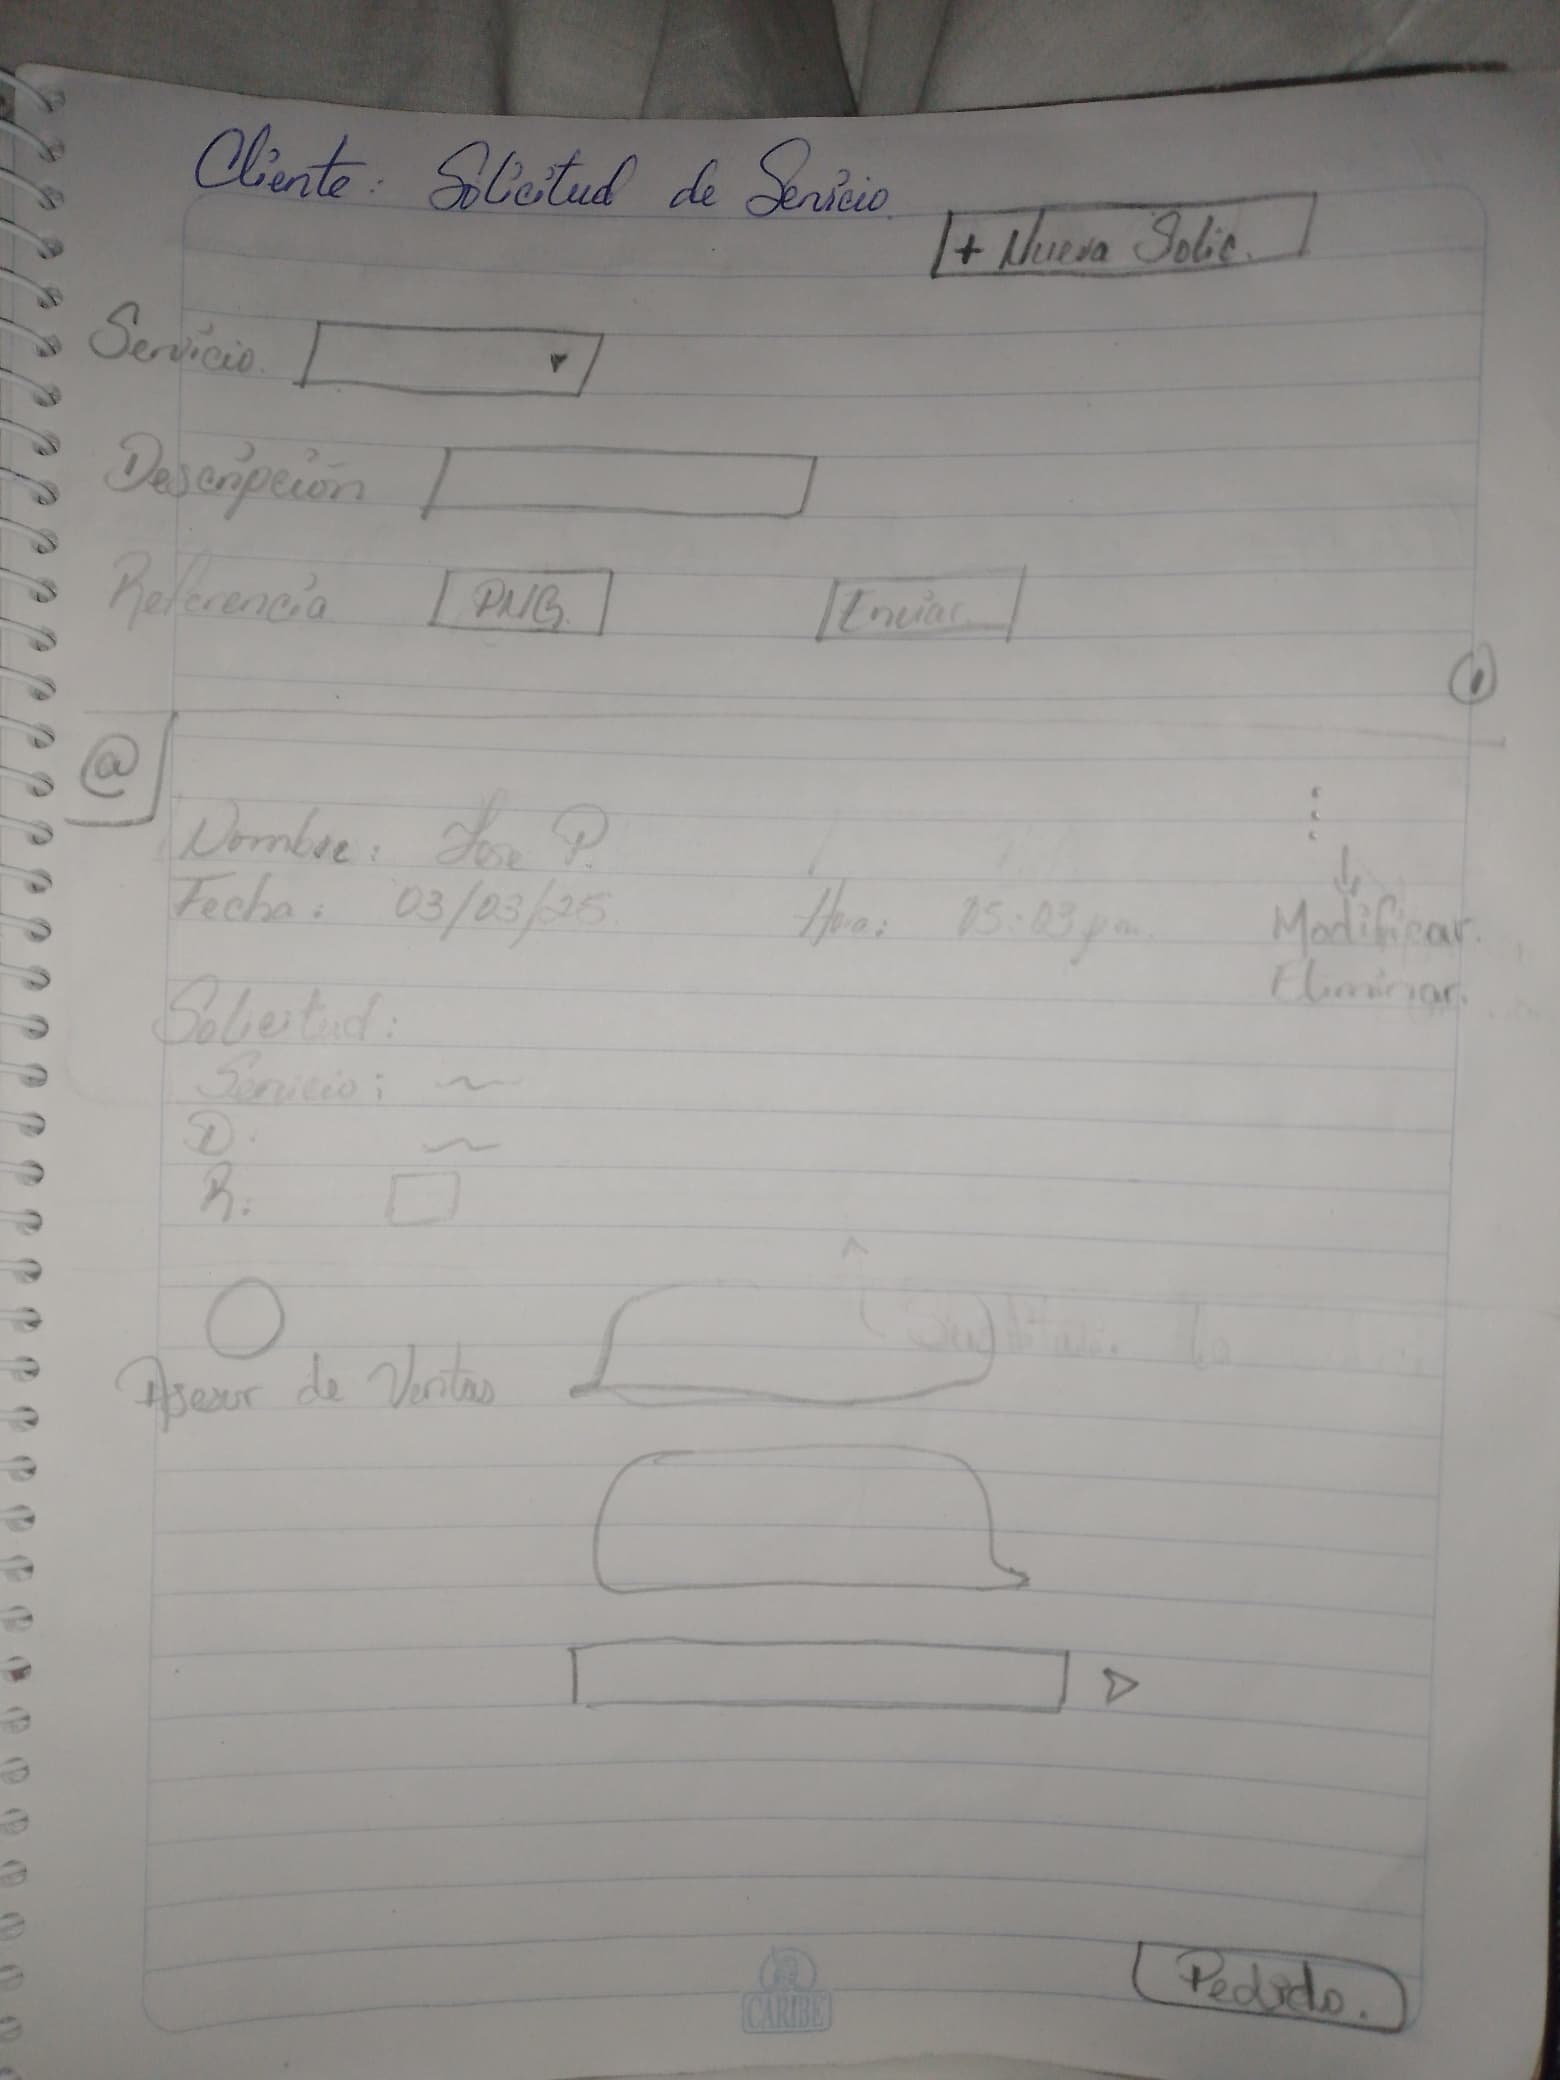 Cliente: Solicitud de Servicio.
+ Nueva Solic.
Servicio.
Descripción
Referencia PNG. Enviar.
1
@
Nombre: Jose P.
Fecha: 03/03/25. Hora: 05:03 pm.
Modificar.
Eliminar.
Solicitud:
Servicio:
D.
R:
Asesor de Ventas
Pedido.
CARIBE